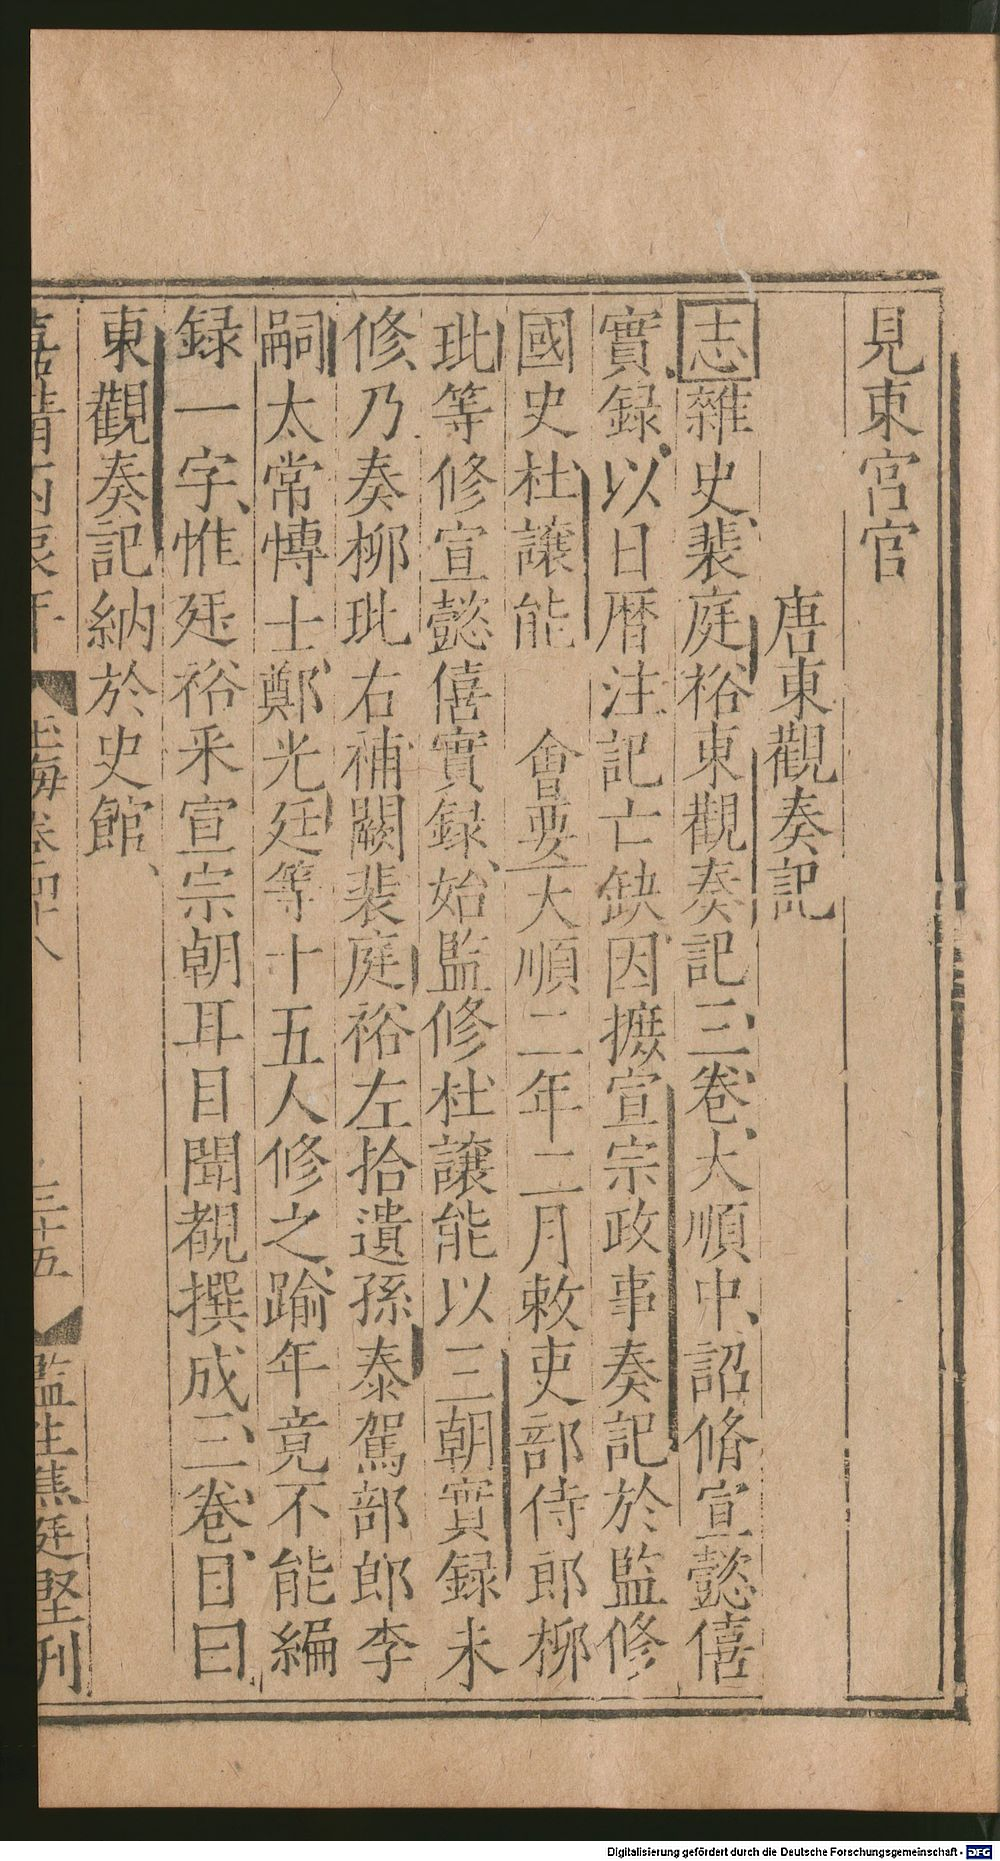 見東宮官
唐東觀奏記
志雜史裴庭裕東觀奏記三卷大順中詔脩宣懿僖
實録以日暦注記亡缺因摭宣宗政事奏記於監修
國史杜讓能 會要大順二年二月敕吏部侍郎柳
玭等修宣懿僖實録始監修杜讓能以三朝實録未
修乃奏柳玭右補闕裴庭裕左拾遺孫泰駕部郎李
嗣太常博士鄭光廷等十五人修之踰年竟不能編
録一字惟廷裕采宣宗朝耳目聞覩撰成三卷目曰
東觀奏記納於史館
嘉靖丙辰年 玉海卷四十八 三十五 監生焦廷堅刊
Digitalisierung gefördert durch die Deutsche Forschungsgemeinschaft - DFG